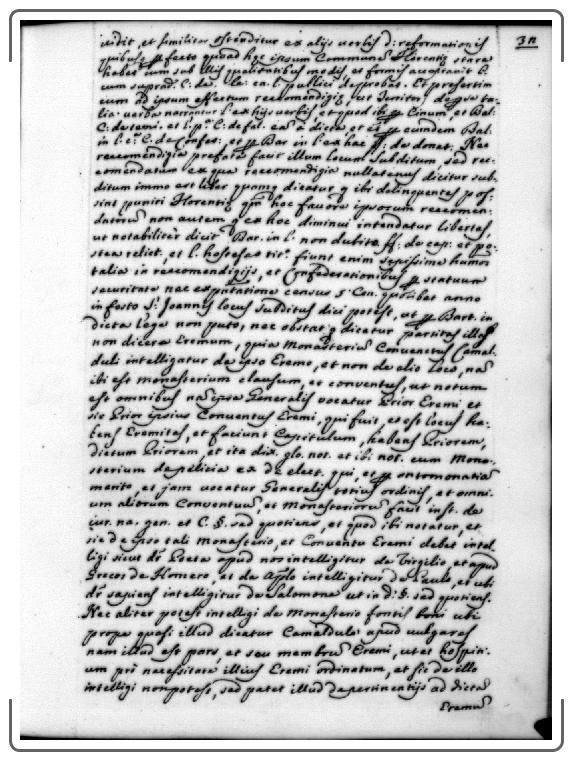 311
uidit, et similiter ostenditur ex alijs uerbis d: reformationis
quibus fecto quoad hoc ipsum Commune Florentię stare
habet cum sub illis qualitatibus modis, et formis accipiant
cum
cum ad ipsum effectum reccomendigię, ut
uerba narrantur ex hijs uerbis et quod ibi Cinum, et Bal:
C: de et l: p.ª C: de fal. dicta, et eundem Bal.
in l. C: de Confess: et Bar in l. ex hac ff: de donat. Nec
reccomendigia prefata facit illum locum subditum, sed rec-
comendatum ex qua reccomendigia nullatenus dicitur sub-
ditum immo est liber quamq dicatur q ibi delinquentes pos-
sint puniri Florentię, hoc fauore ipsorum reccomen-
datorum non autem q ex hoc diminui intendatur libertas,
ut notabiliter dicit Bar. in l. non dubito ff: de cap: et po-
stea relict. et l. hostes tit. fiunt enim sepissime
talia in reccomendigijs, et Confederationibus statuum
securitate nec exprestatione census 5 Con. quolibet anno
in festo S. Joannis locus subditus dici potest, ut Bart. in
dicta lege non puto, nec obstat q dicatur partitas illas
non dicere Eremum, quia Monasterium Conuentus Camal-
duli intelligatur de ipso Eremo, et non de alio loco, nam
ibi est monasterium clausum, et conuentus, ut notum
est omnibus nam ipse Generalis uocatur Prior Eremi et
sic Prior ipsius Conuentus Eremi, qui fuit, et est locus ha-
bens Eremitas, et faciunt Capitulum, habens Priorem,
dictum Priorem, et ita dix. glo. not. et ibi not. cum Mona-
sterium de pelicia ex de elect. qui, et
merito, et jam uocatur Generalis totius ordinis, et omni-
um aliorum Conuentuum, et Monasteriorum facit inst. de
iur. na. gen. et C. §. sed quotiens, et quod ibi notatur, et
sic de ipso tali monasterio, et Conuentu Eremi debet intel-
ligi sicut dr Poeta apud nos intelligitur de Virgilio, et apud
Grecos de Homero, et de Aplo intelligitur de Paulo, et ubi
dr sapiens intelligitur de Salomone ut in d: §. sed quotiens.
Nec aliter potest intelligi de Monasterio fontis boni ubi
prope quasi illud dicatur Camalduli apud uulgares
nam illud est pars, et seu membrum Eremi, ut et hospiti-
um pro necessitate illius Eremi ordinatum, et sic de illo
intelligi non potest, sed patet illud de pertinentijs ad dictum
Eremum